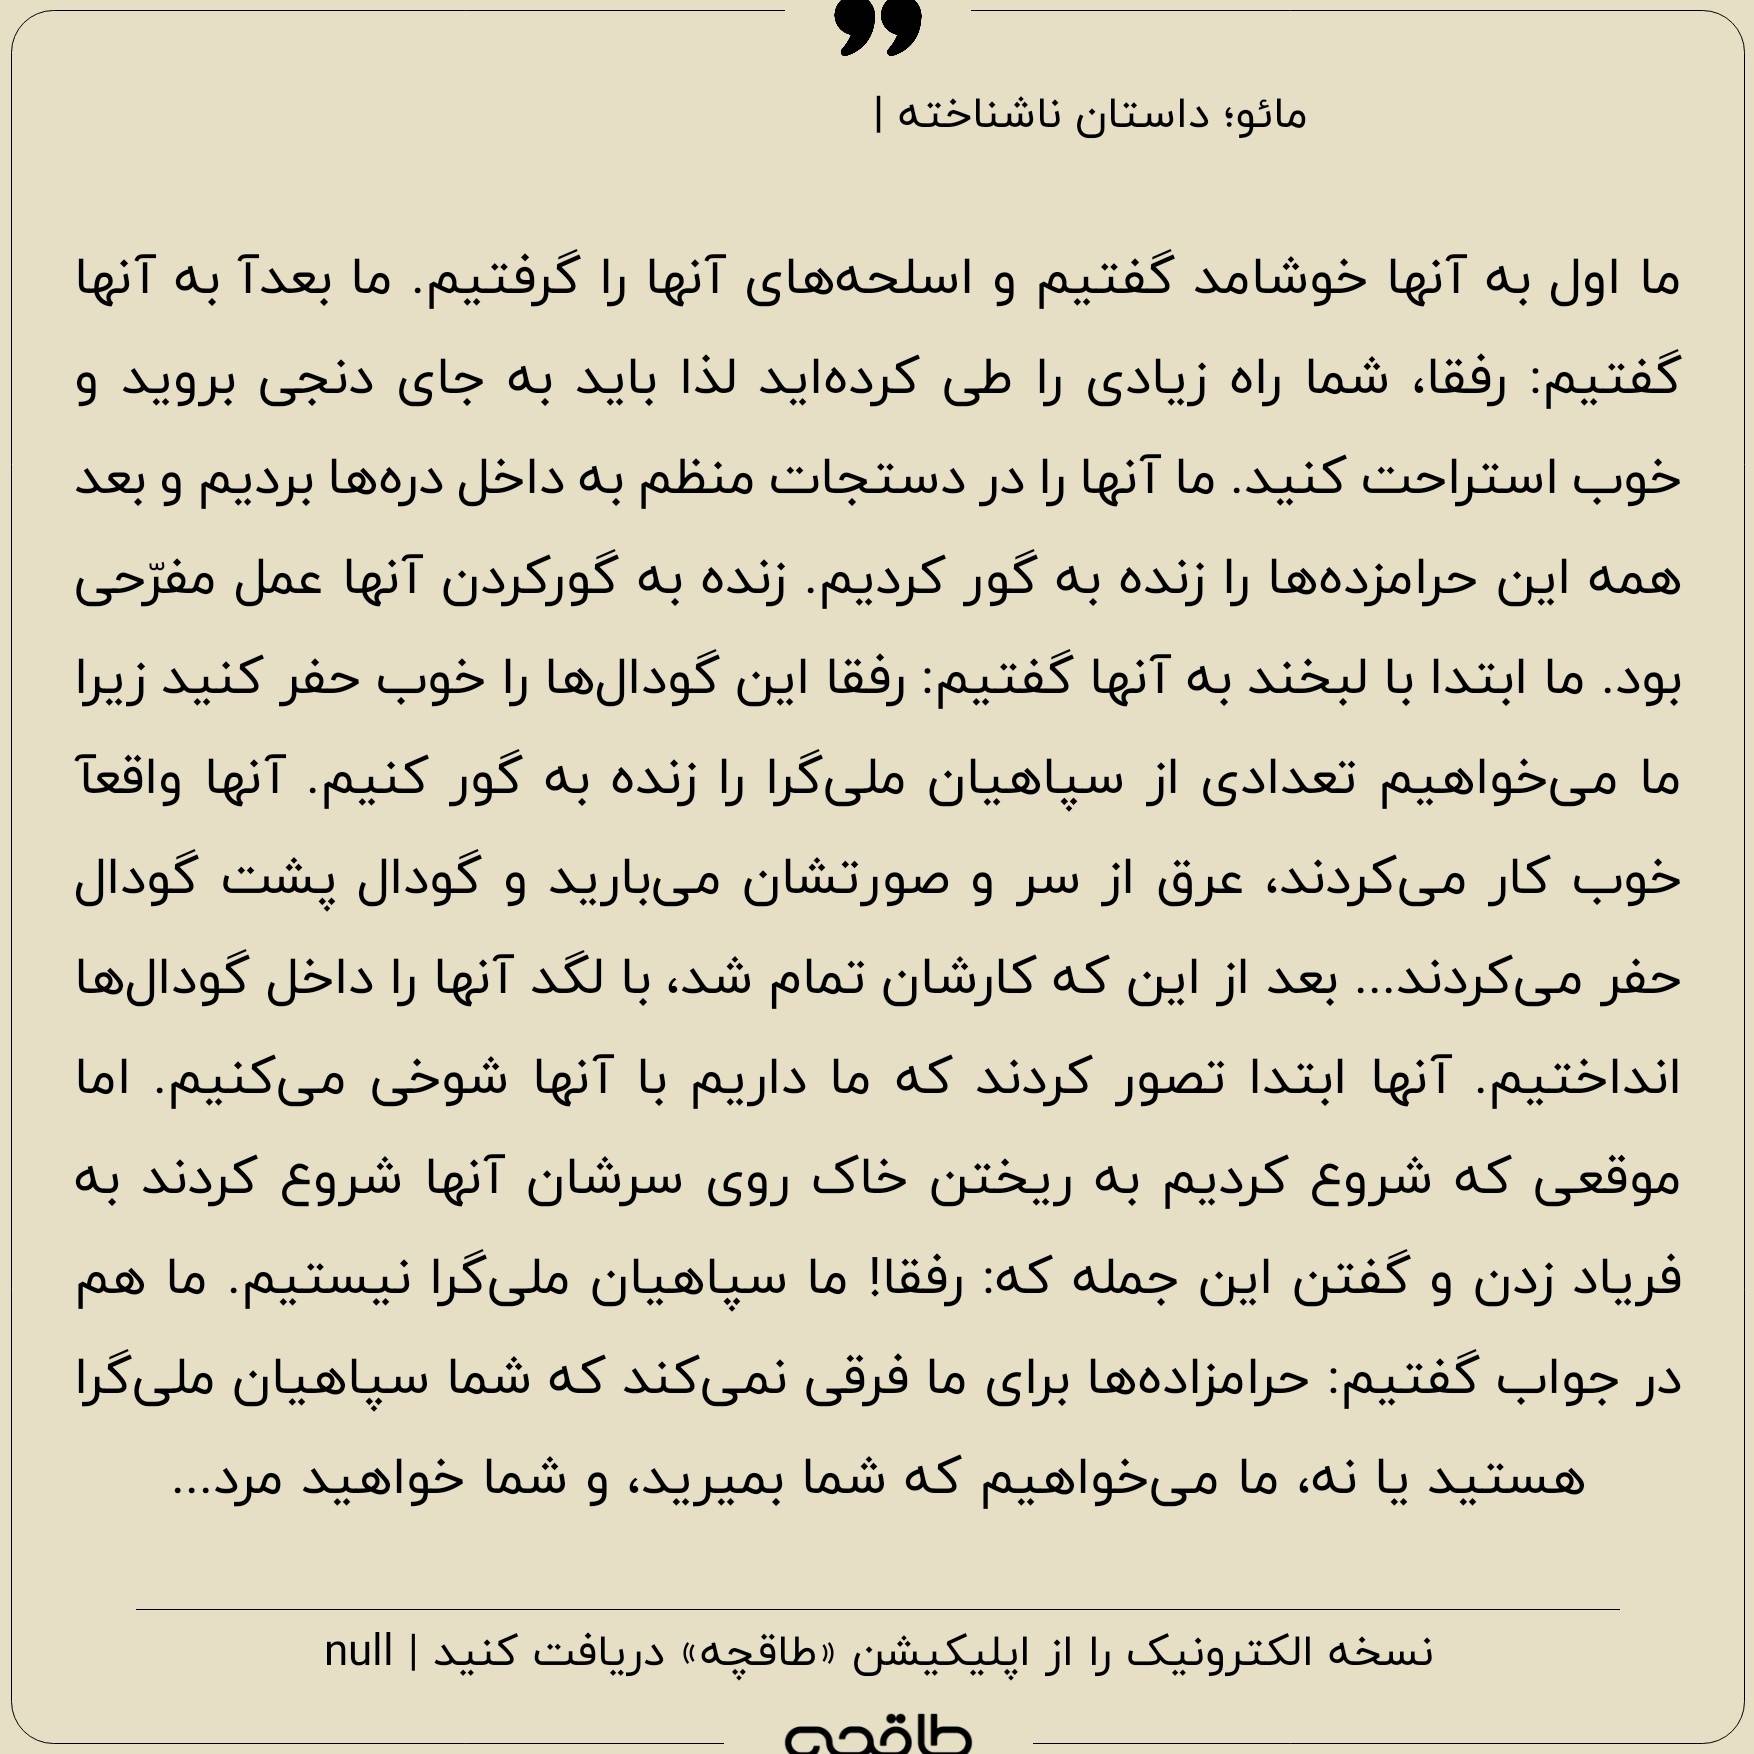 مائو؛ داستان ناشناخته |
ما اول به آنها خوشامد گفتیم و اسلحه‌های آنها را گرفتیم. ما بعدآ به آنها
گفتیم: رفقا، شما راه زیادی را طی کرده‌اید لذا باید به جای دنجی بروید و
خوب استراحت کنید. ما آنها را در دستجات منظم به داخل دره‌ها بردیم و بعد
همه این حرامزده‌ها را زنده به گور کردیم. زنده به گورکردن آنها عمل مفرّحی
بود. ما ابتدا با لبخند به آنها گفتیم: رفقا این گودال‌ها را خوب حفر کنید زیرا
ما می‌خواهیم تعدادی از سپاهیان ملی‌گرا را زنده به گور کنیم. آنها واقعآ
خوب کار می‌کردند، عرق از سر و صورتشان می‌بارید و گودال پشت گودال
حفر می‌کردند... بعد از این که کارشان تمام شد، با لگد آنها را داخل گودال‌ها
انداختیم. آنها ابتدا تصور کردند که ما داریم با آنها شوخی می‌کنیم. اما
موقعی که شروع کردیم به ریختن خاک روی سرشان آنها شروع کردند به
فریاد زدن و گفتن این جمله که: رفقا! ما سپاهیان ملی‌گرا نیستیم. ما هم
در جواب گفتیم: حرامزاده‌ها برای ما فرقی نمی‌کند که شما سپاهیان ملی‌گرا
هستید یا نه، ما می‌خواهیم که شما بمیرید، و شما خواهید مرد...
نسخه الکترونیک را از اپلیکیشن «طاقچه» دریافت کنید | null
طاقچه